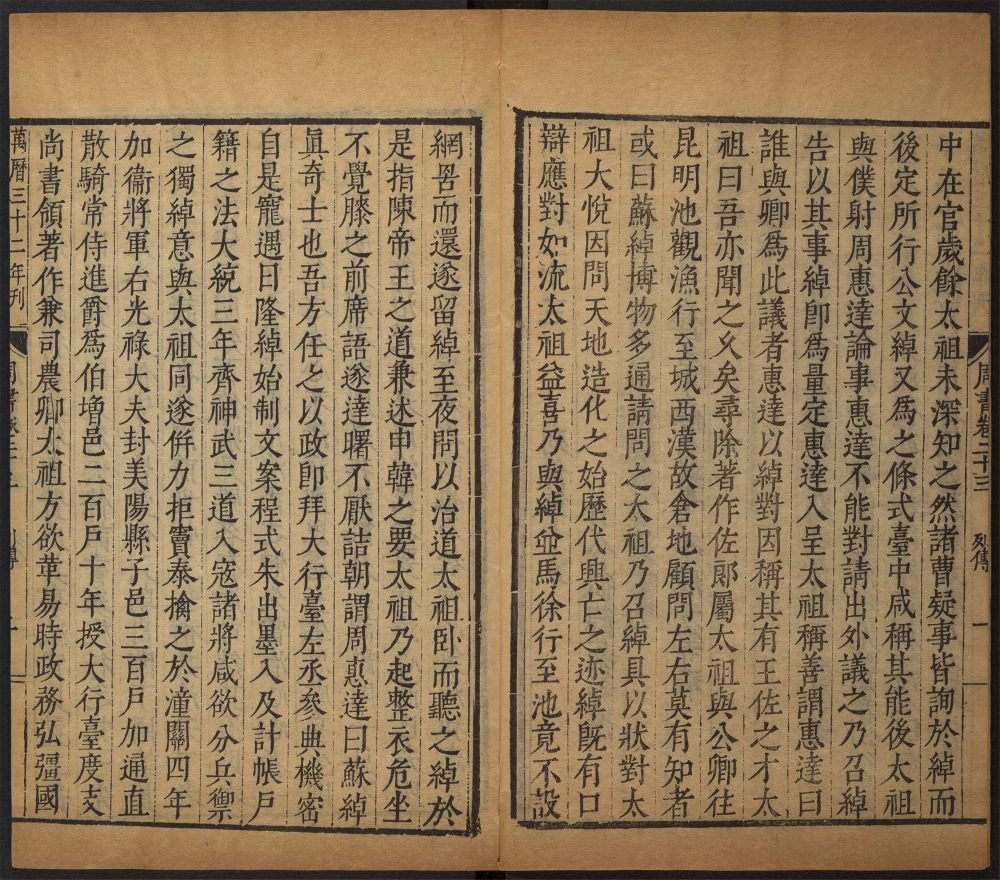 周書卷二十三 列傳 一
中在官歲餘太祖未深知之然諸曹疑事皆詢於綽而
後定所行公文綽又爲之條式臺中咸稱其能後太祖
與僕射周惠達論事惠達不能對請出外議之乃召綽
告以其事綽卽爲量定惠達入呈太祖稱善謂惠達曰
誰與卿爲此議者惠達以綽對因稱其有王佐之才太
祖曰吾亦聞之久矣尋除著作佐郎屬太祖與公卿往
昆明池觀漁行至城西漢故倉地顧問左右莫有知者
或曰蘇綽博物多通請問之太祖乃召綽具以狀對太
祖大悅因問天地造化之始歷代興亡之迹綽旣有口
辯應對如流太祖益喜乃與綽並馬徐行至池竟不設
網罟而還遂留綽至夜問以治道太祖卧而聽之綽於
是指陳帝王之道兼述申韓之要太祖乃起整衣危坐
不覺膝之前席語遂達曙不厭詰朝謂周惠達曰蘇綽
眞奇士也吾方任之以政卽拜大行臺左丞參典機密
自是寵遇日隆綽始制文案程式朱出墨入及計帳戶
籍之法大統三年齊神武三道入寇諸將咸欲分兵禦
之獨綽意與太祖同遂倂力拒竇泰擒之於潼關四年
加衞將軍右光祿大夫封美陽縣子邑三百戶加通直
散騎常侍進爵爲伯增邑二百戶十年授大行臺度支
尚書領著作兼司農卿太祖方欲革易時政務弘彊國
萬曆三十二年刊